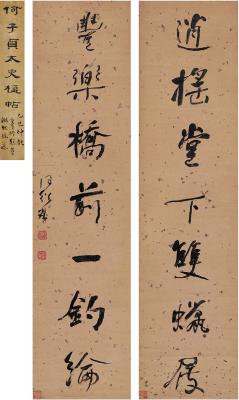 逍榣堂下雙蠟屐
豐樂橋前一釣綸
何紹基
何子貞太史楹帖